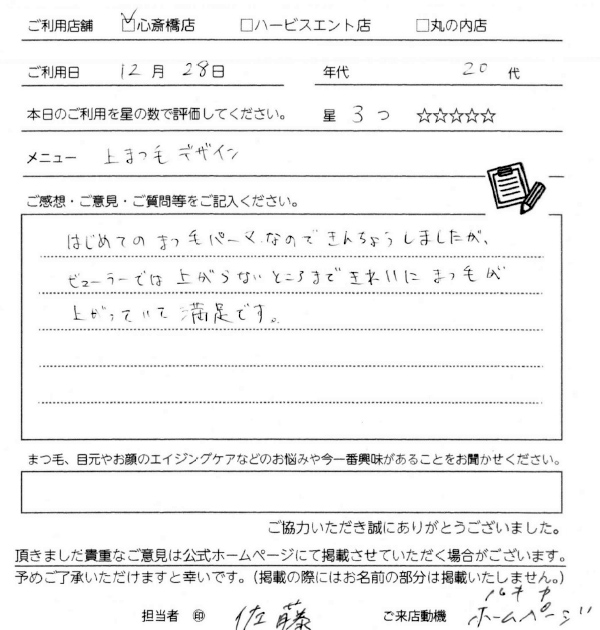 ご利用店舗 ☑心斎橋店 □ハービスエント店 □丸の内店
ご利用日 12月 28日 年代 20代
本日のご利用を星の数で評価してください。 星 3つ ☆☆☆☆☆
メニュー 上まつ毛デザイン
ご感想・ご意見・ご質問等をご記入ください。
はじめてのまつ毛パーマなのできんちょうしましたが、
ビューラーでは上がらないところまできれいにまつ毛が
上がっていて満足です。
まつ毛、目元やお顔のエイジングケアなどのお悩みや今一番興味があることをお聞かせください。
ご協力いただき誠にありがとうございました。
頂きました貴重なご意見は公式ホームページにて掲載させていただく場合がございます。
予めご了承いただけますと幸いです。(掲載の際にはお名前の部分は掲載いたしません。)
担当者 ㊞ 佐藤 ご来店動機 ホームページ